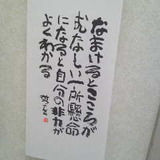 なまけるとこころが
むなしい一所懸命
になると自分の非力が
よくわかる